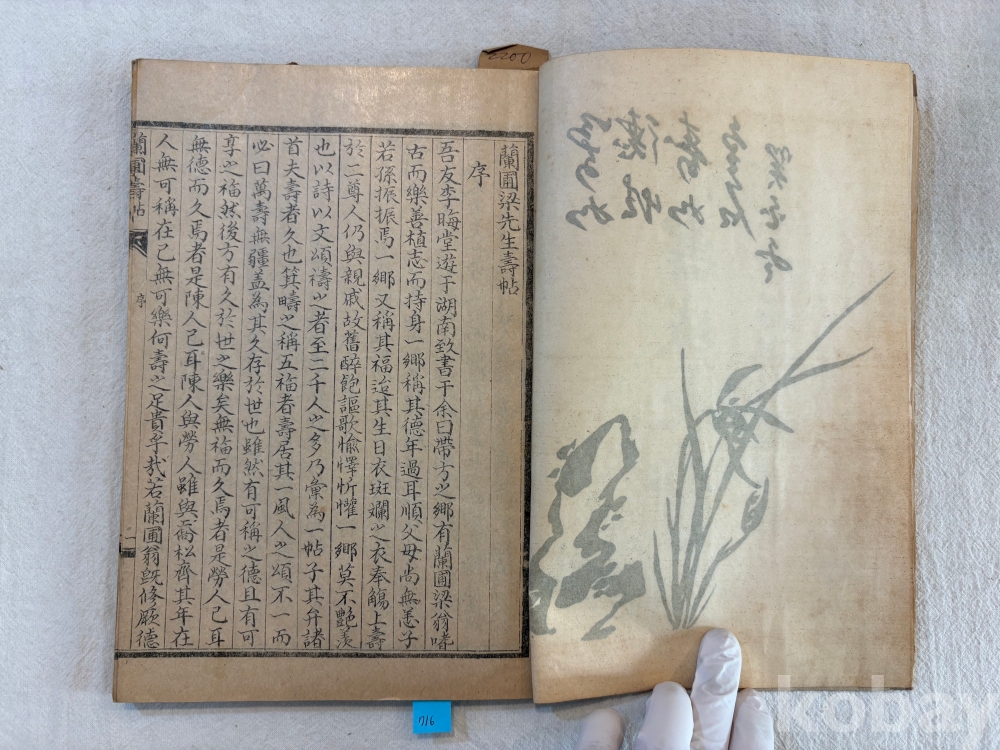 蘭圃梁先生壽帖
序
吾友李晦堂遊于湖南致書于余曰帶方之鄉有蘭圃梁翁嗜
古而樂善植志而持身一鄉稱其德年過耳順父母尚無恙子
若孫振振焉一鄉又稱其福迨其生日衣斑斕之衣奉觴上壽
於二尊人仍與親戚故舊醉飽謳歌愉懌忻懽一鄉莫不艷羨
也以詩以文頌禱之者至二千人之多乃彙為一帖子其弁諸
首夫壽者久也箕疇之稱五福者壽居其一風人之頌不一而
必曰萬壽無疆盖為其久存於世也雖然有可稱之德且有可
享之福然後方有久於世之樂矣無福而久焉者是勞人已耳
無德而久焉者是陳人已耳陳人與勞人雖與喬松齊其年在
人無可稱在己無可樂何壽之足貴乎哉若蘭圃翁旣修厥德
蘭圃壽帖
序
一
2200
716
kobay